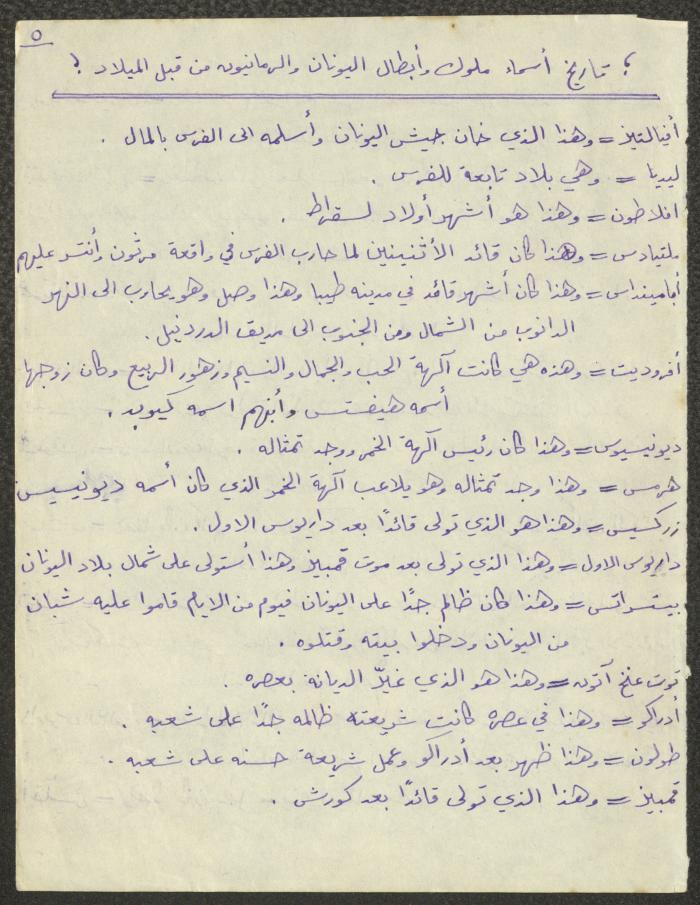 ٥
؛ تاريخ أسماء ملوك وأبطال اليونان والرمانيون من قبل الميلاد ؛
أفيالتيز = وهذا الذي خان جيش اليونان وأسلمه الى الفرس بالمال .
ليديا = وهي بلاد تابعة للفرس .
افلاطون = وهذا هو أشهر أولاد لسقراط .
ملتيادس = وهذا كان قائد الأثنينين لما حارب الفرس في واقعة مرثون وأنتسر عليهم
أبامينداس = وهذا كان أشهر قائد في مدينه طيبا وهذا وصل وهو يحارب الى النهر
الدانوب من الشمال ومن الجنوب الى مريق الدردنيل .
أفروديت = وهذه هي كانت آلهة الحب والجمال والنسيم وزهور الربيع وكان زوجها
أسمه هيفستس وأبنهم اسمه كيوبد .
ديونيسيوس = وهذا كان رئيس آلهة الخمر ووجد تمثاله .
هرمس = وهذا وجد تمثاله وهو يلاعب آلهة الخمر الذي كان أسمه ديونيسيس
زركسيس = وهذا هو الذي تولى قائدًا بعد داريوس الاول .
داريوس الاول = وهذا الذي تولى بعد موت قمبيز وهذا أستولى على شمال بلاد اليونان
بيتسراتس = وهذا كان ظالم جدًا على اليونان فيوم من الايام قاموا عليه شبان
من اليونان ودخلوا بيته وقتلوه .
توت عنخ آتون = وهذا هو الذي غيّر الديانة بعصره .
أدراكو = وهذا في عصره كانت شريعته ظالمه جدًا على شعبه .
طولون = وهذا ظهر بعد أدراكو وعمل شريعة حسنه على شعبه .
قمبيز = وهذا الذي تولى قائدًا بعد كورش .